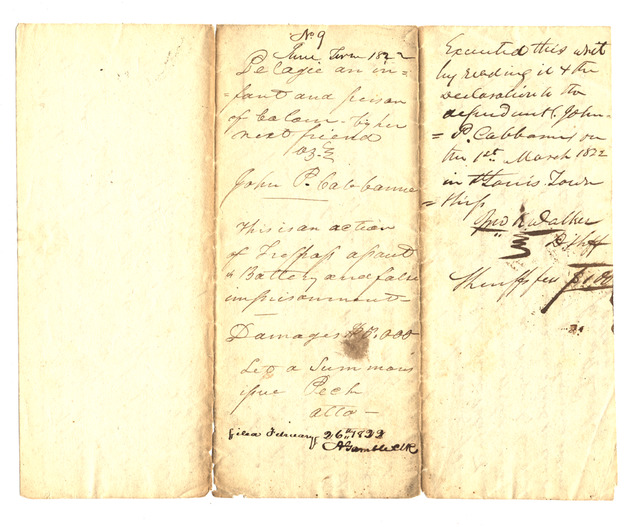 No 9
June Term 1822
Pelagie an in=
=fant and person
of Colour - by her
next friend
vs.
John P. Cabbanne
This is an action
of Trespass assault
& Battery and false
imprisonment
Damages $3.000
Let a Summons
issue Pech
atto -
filed February 26th 1822
A Gamble Clk
Executed this writ
by reading it & the
declaration to the
defendant John
= P. Cabbannis on
the 1st March 1822
in St Louis Town
= ship
Jno K. Walker
D Shff
Sheriffs fee $1,00